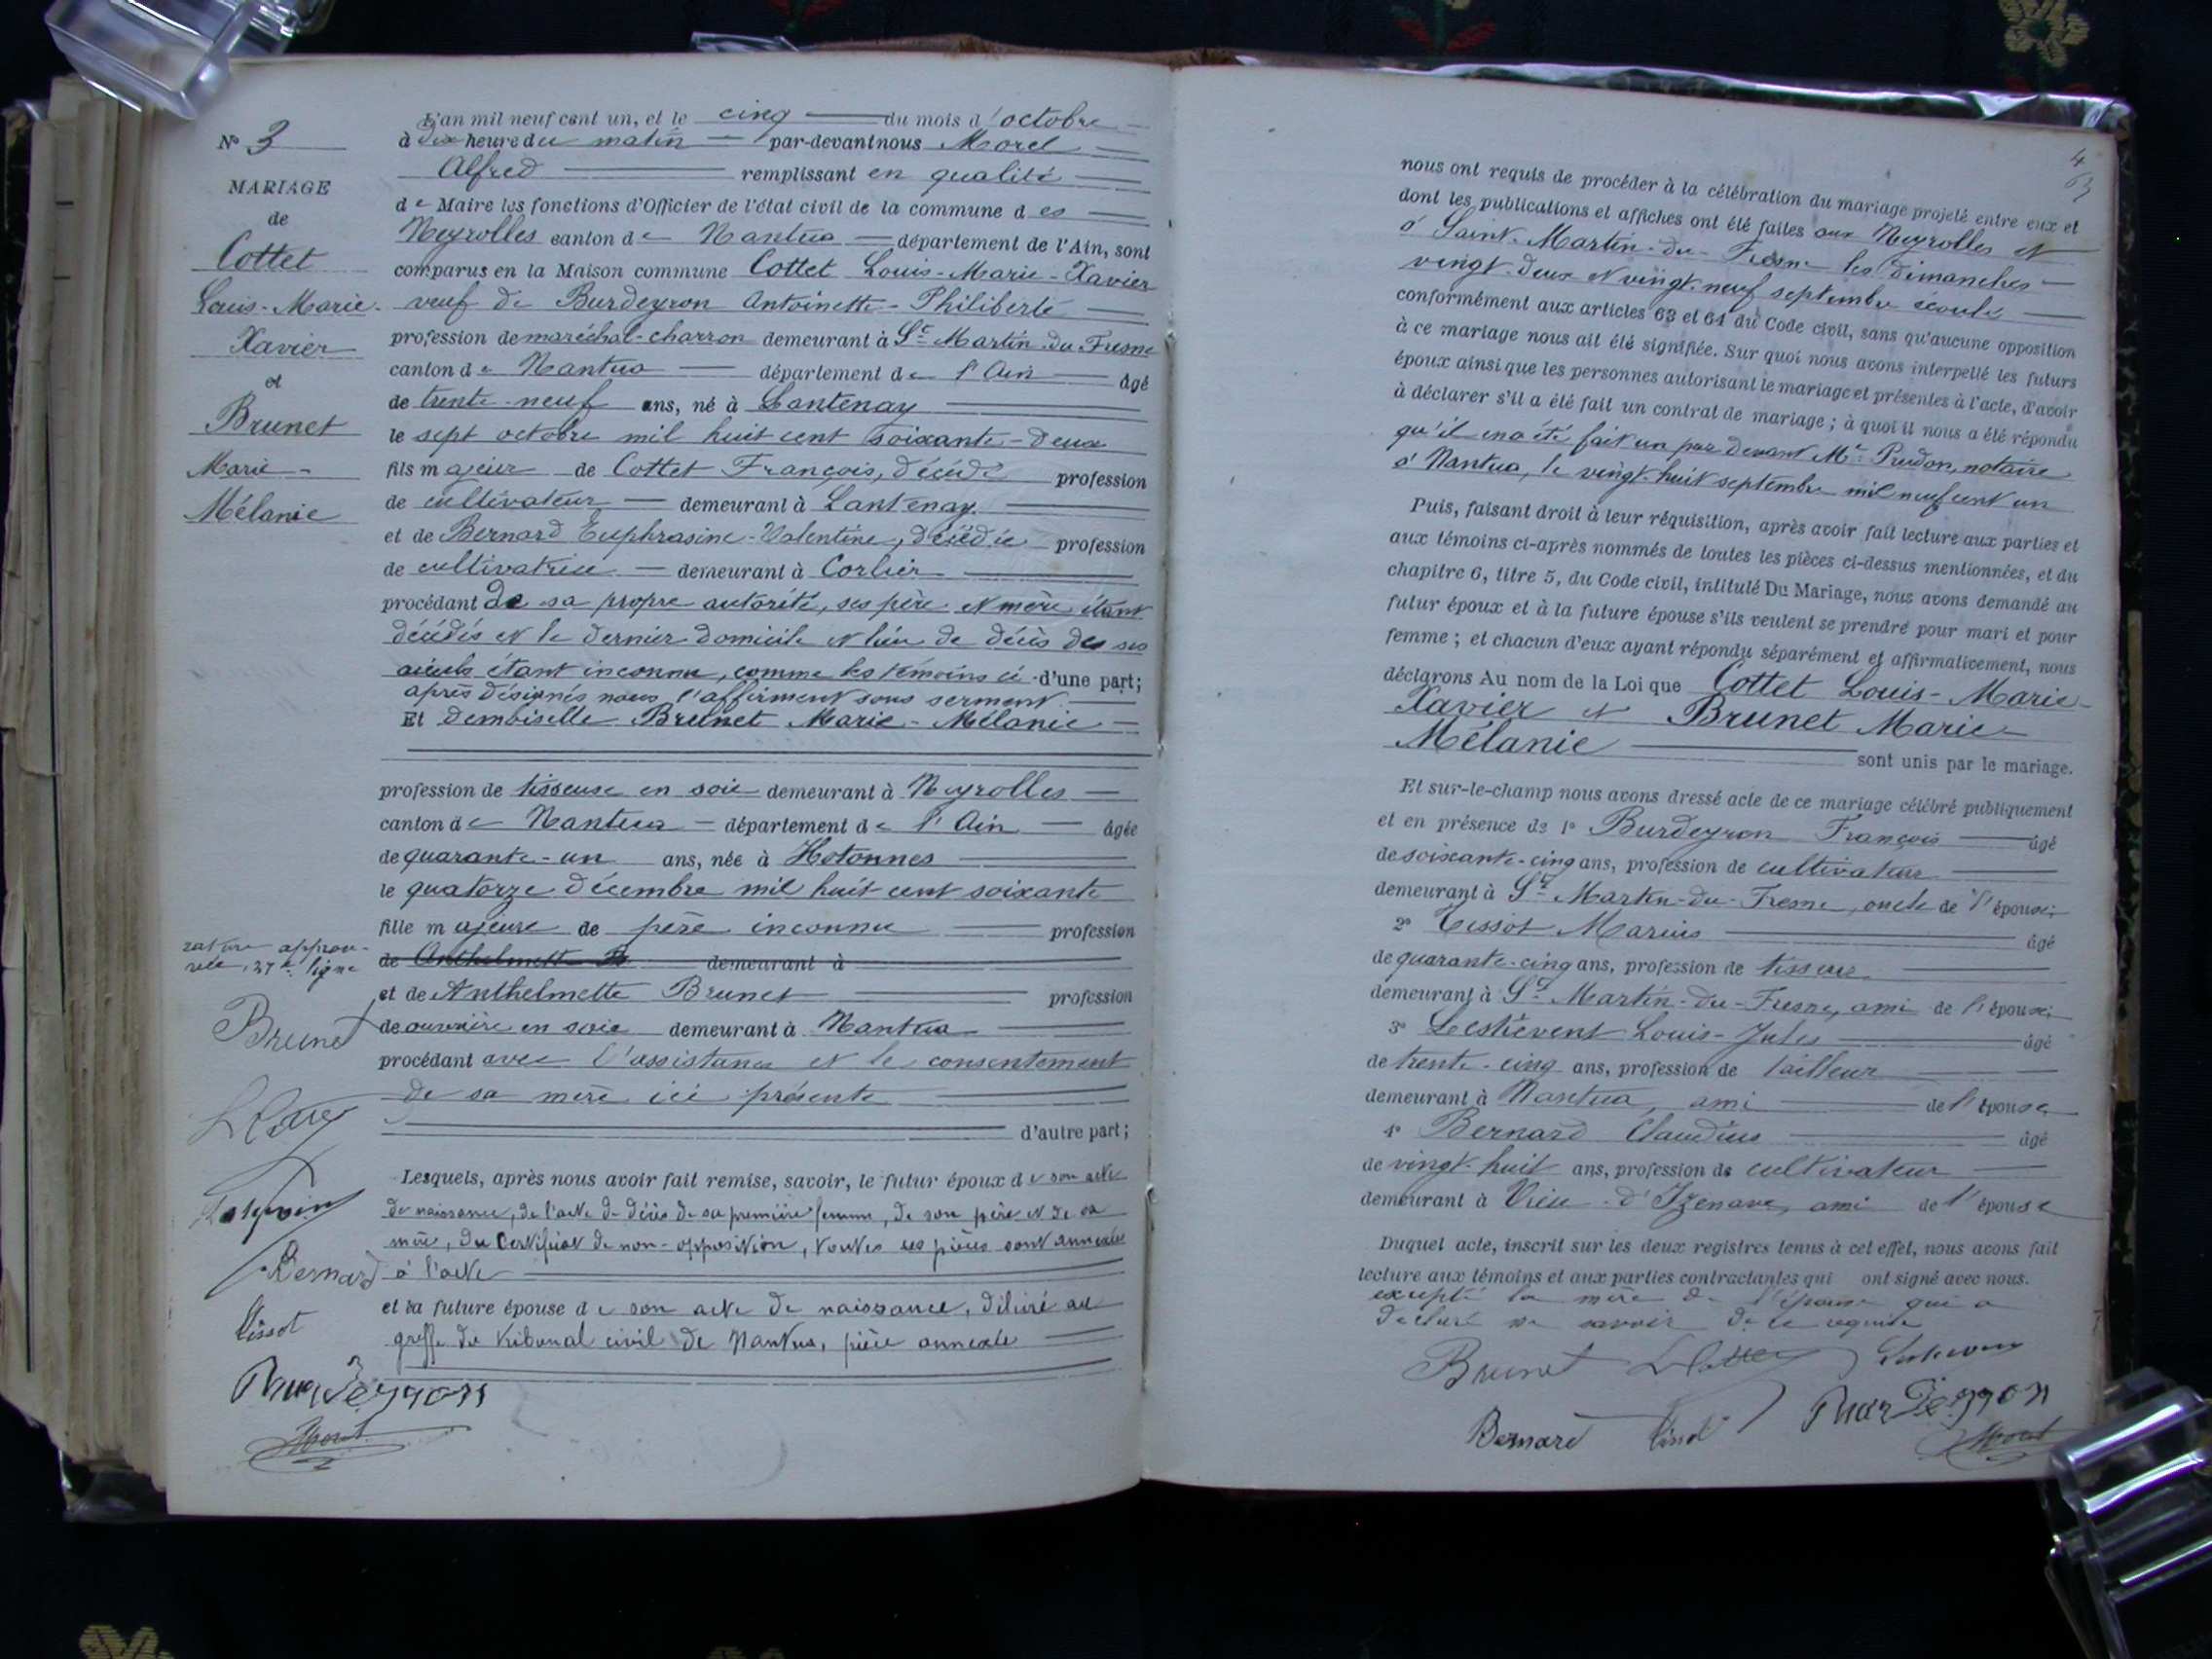 N° 3
MARIAGE
de
Cottet
Louis-Marie-
Xavier
et
Brunet
Marie-
Mélanie
rature approu-
vée, 27e ligne
Brunet
Bernard
Tissot
L'an mil neuf cent un, et le cinq du mois d'octobre
à dix heure du matin par-devant nous Morel
Alfred remplissant en qualité
de Maire les fonctions d'Officier de l'état civil de la commune des
Neyrolles canton de Nantua département de l'Ain, sont
comparus en la Maison commune Cottet Louis-Marie-Xavier
veuf de Burdeyron Antoinette-Philiberte
profession de maréchal-charron demeurant à St Martin-du-Fresne
canton de Nantua département de l'Ain âgé
de trente-neuf ans, né à Lantenay
le sept octobre mil huit cent soixante-deux
fils majeur de Cottet François, décédé profession
de cultivateur demeurant à Lantenay
et de Bernard Euphrasine-Valentine, décédée profession
de cultivatrice demeurant à Corlier
procédant de sa propre autorité, ses père et mère étant
décédés et le dernier domicile et lieu de décès des ses
aïeuls étant inconnu, comme les témoins ci-d'une part;
après désignés nous l'affirment sous serment
Et demoiselle Brunet Marie-Mélanie
profession de tisseuse en soie demeurant à Neyrolles
canton de Nantua département de l'Ain âgée
de quarante-un ans, née à Hotonnes
le quatorze décembre mil huit cent soixante
fille majeure de père inconnu profession
de Anthelmette demeurant à
et de Anthelmette Brunet profession
de ouvrière en soie demeurant à Nantua
procédant avec l'assistance et le consentement
de sa mère ici présente
d'autre part;
Lesquels, après nous avoir fait remise, savoir, le futur époux de son acte
de naissance, de l'acte de décès de sa première femme, de son père et de sa
mère, du certificat de non-opposition, toutes ces pièces sont annexées
à l'acte
et la future épouse de son acte de naissance, délivré au
greffe du tribunal civil de Nantua, pièce annexée
4
63
nous ont requis de procéder à la célébration du mariage projeté entre eux et
dont les publications et affiches ont été faites aux Neyrolles et
à Saint-Martin-du-Fresne les dimanches
vingt-deux et vingt-neuf septembre écoulé
conformément aux articles 63 et 64 du Code civil, sans qu'aucune opposition
à ce mariage nous ait été signifiée. Sur quoi nous avons interpellé les futurs
époux ainsi que les personnes autorisant le mariage et présentes à l'acte, d'avoir
à déclarer s'il a été fait un contrat de mariage; à quoi il nous a été répondu
qu'il en a été fait un par devant Me Prudon, notaire
à Nantua, le vingt-huit septembre mil neuf cent un
Puis, faisant droit à leur réquisition, après avoir fait lecture aux parties et
aux témoins ci-après nommés de toutes les pièces ci-dessus mentionnées, et du
chapitre 6, titre 5, du Code civil, intitulé Du Mariage, nous avons demandé au
futur époux et à la future épouse s'ils veulent se prendre pour mari et pour
femme; et chacun d'eux ayant répondu séparément et affirmativement, nous
déclarons Au nom de la Loi que Cottet Louis-Marie-
Xavier et Brunet Marie-
Mélanie
sont unis par le mariage.
Et sur-le-champ nous avons dressé acte de ce mariage célébré publiquement
et en présence de 1° Burdeyron François âgé
de soixante-cinq ans, profession de cultivateur
demeurant à St Martin-du-Fresne, oncle de l'épouse;
2° Tissot Marius âgé
de quarante-cinq ans, profession de tisseur
demeurant à St Martin-du-Fresne, ami de l'épouse;
3° Lestievent Louis-Jules âgé
de trente-cinq ans, profession de tailleur
demeurant à Nantua, ami de l'épouse
4° Bernard Claudius âgé
de vingt-huit ans, profession de cultivateur
demeurant à Vieu-d'Izenave, ami de l'épouse
Duquel acte, inscrit sur les deux registres tenus à cet effet, nous avons fait
lecture aux témoins et aux parties contractantes qui ont signé avec nous.
excepté la mère de l'épouse qui a
déclaré ne savoir de ce requise
Brunet
Bernard Tissot